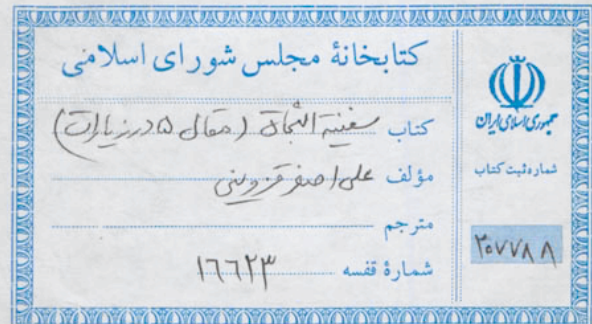 کتابخانهٔ مجلس شورای اسلامی
کتاب سفینة النجاة (مقال ۵ در زیارات)
مؤلف علی اصغر قزوینی
مترجم
شمارهٔ قفسه ۱۶۶۲۳
جمهوری اسلامی ایران
شماره ثبت کتاب
۲۰۷۷۸۸